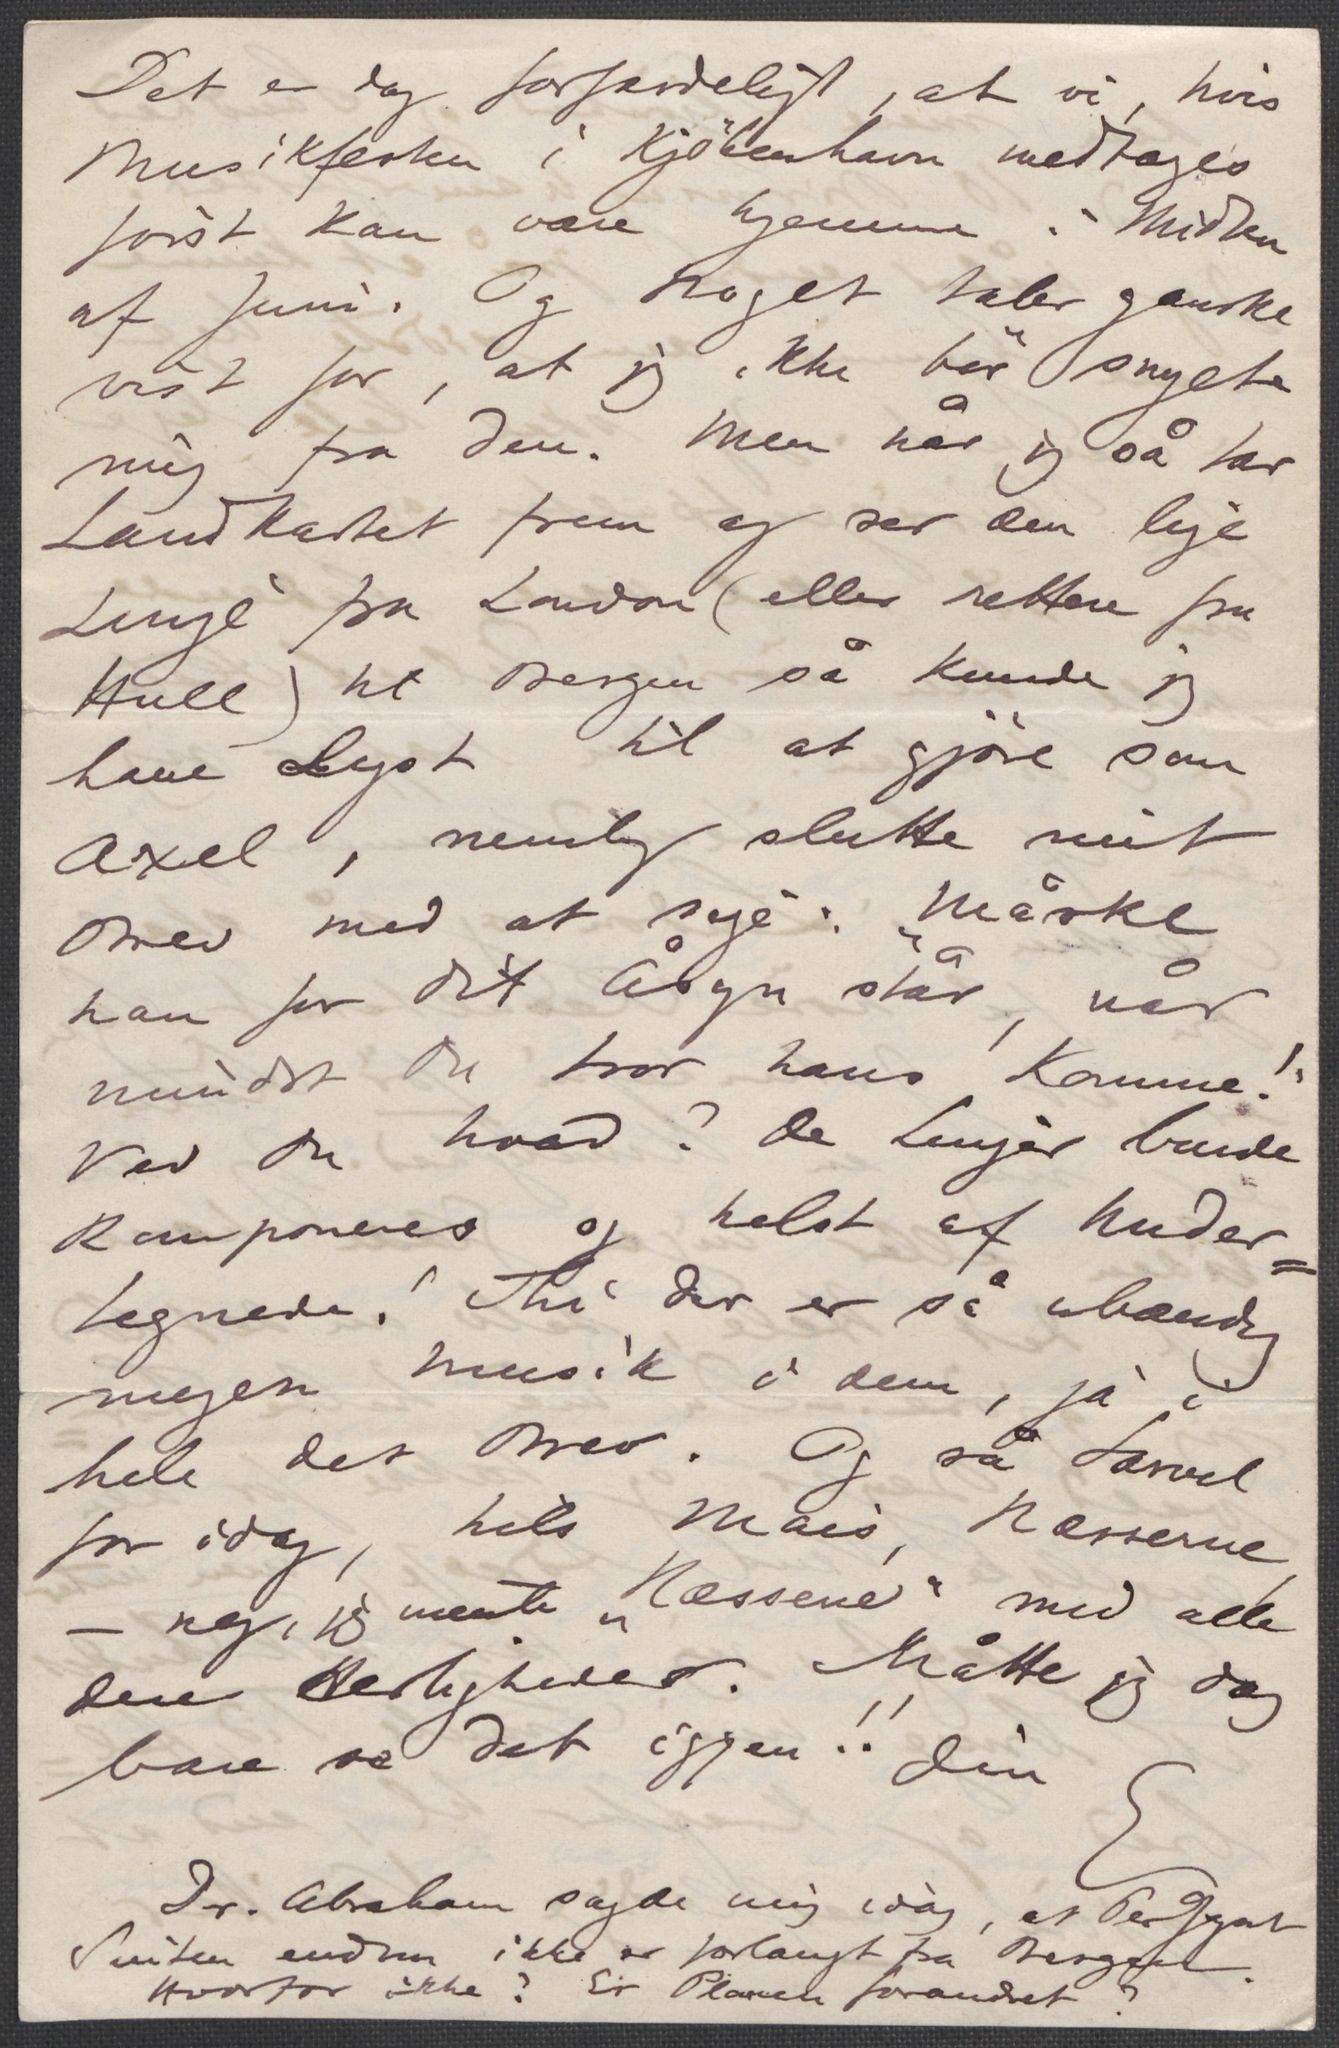 Det er dog forfærdeligt, at vi, hvis
Musikfesten i Kjöbenhavn medtages
först kan være hjemme i Midten
af Juni. Og Noget taler ganske
vist for, at jeg ikke bör snyete
mig fra den. Men når jeg så tar
Landkartet frem og ser den lige
Linje fra London (eller rettere fra
Hull) til Bergen så kunde jeg
have Lyst til at gjöre som
Axel, nemlig slutte mit
Brev med at sige: "Måske
han for dit Åsyn står, når
mindst Du tror hans Komme!"
Ved Du hvad? De Linjer burde
komponeres og helst af Under=
tegnede! Thi der er så ubændig
megen Musik i dem, ja i
hele det Brev. Og så Farvel
for idag, hils Mais, Næsserne,
– nej, jeg mente "Næssene" med alle
dere Herligheder. Måtte jeg dog
bare se det igjen!! Din
E
Dr. Abraham sagde mig idag, at Per Gynt
Suiten endnu ikke er forlangt fra Bergen.
Hvorfor ikke? Er Planen forandret?